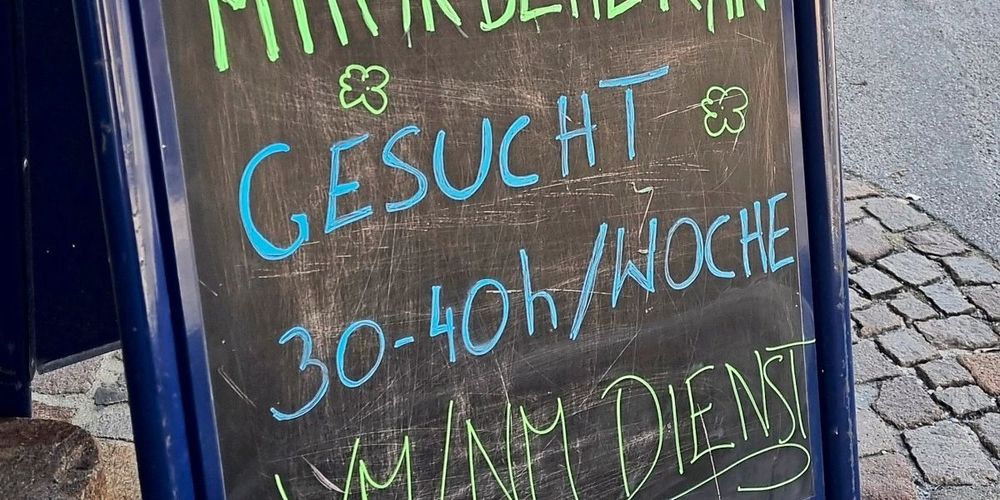 GESUCHT
30-40h/WOCHE
VM/NM DIENST